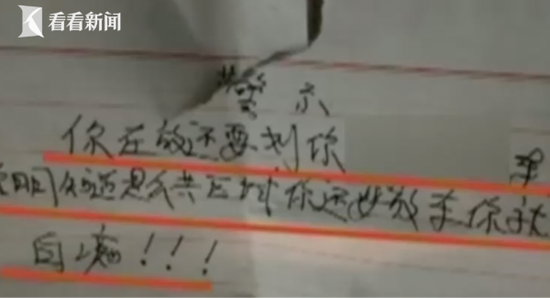 看看新闻
警示
你在放还要划你 车
明知道是公共区域你还要放车你就
白痴!!!